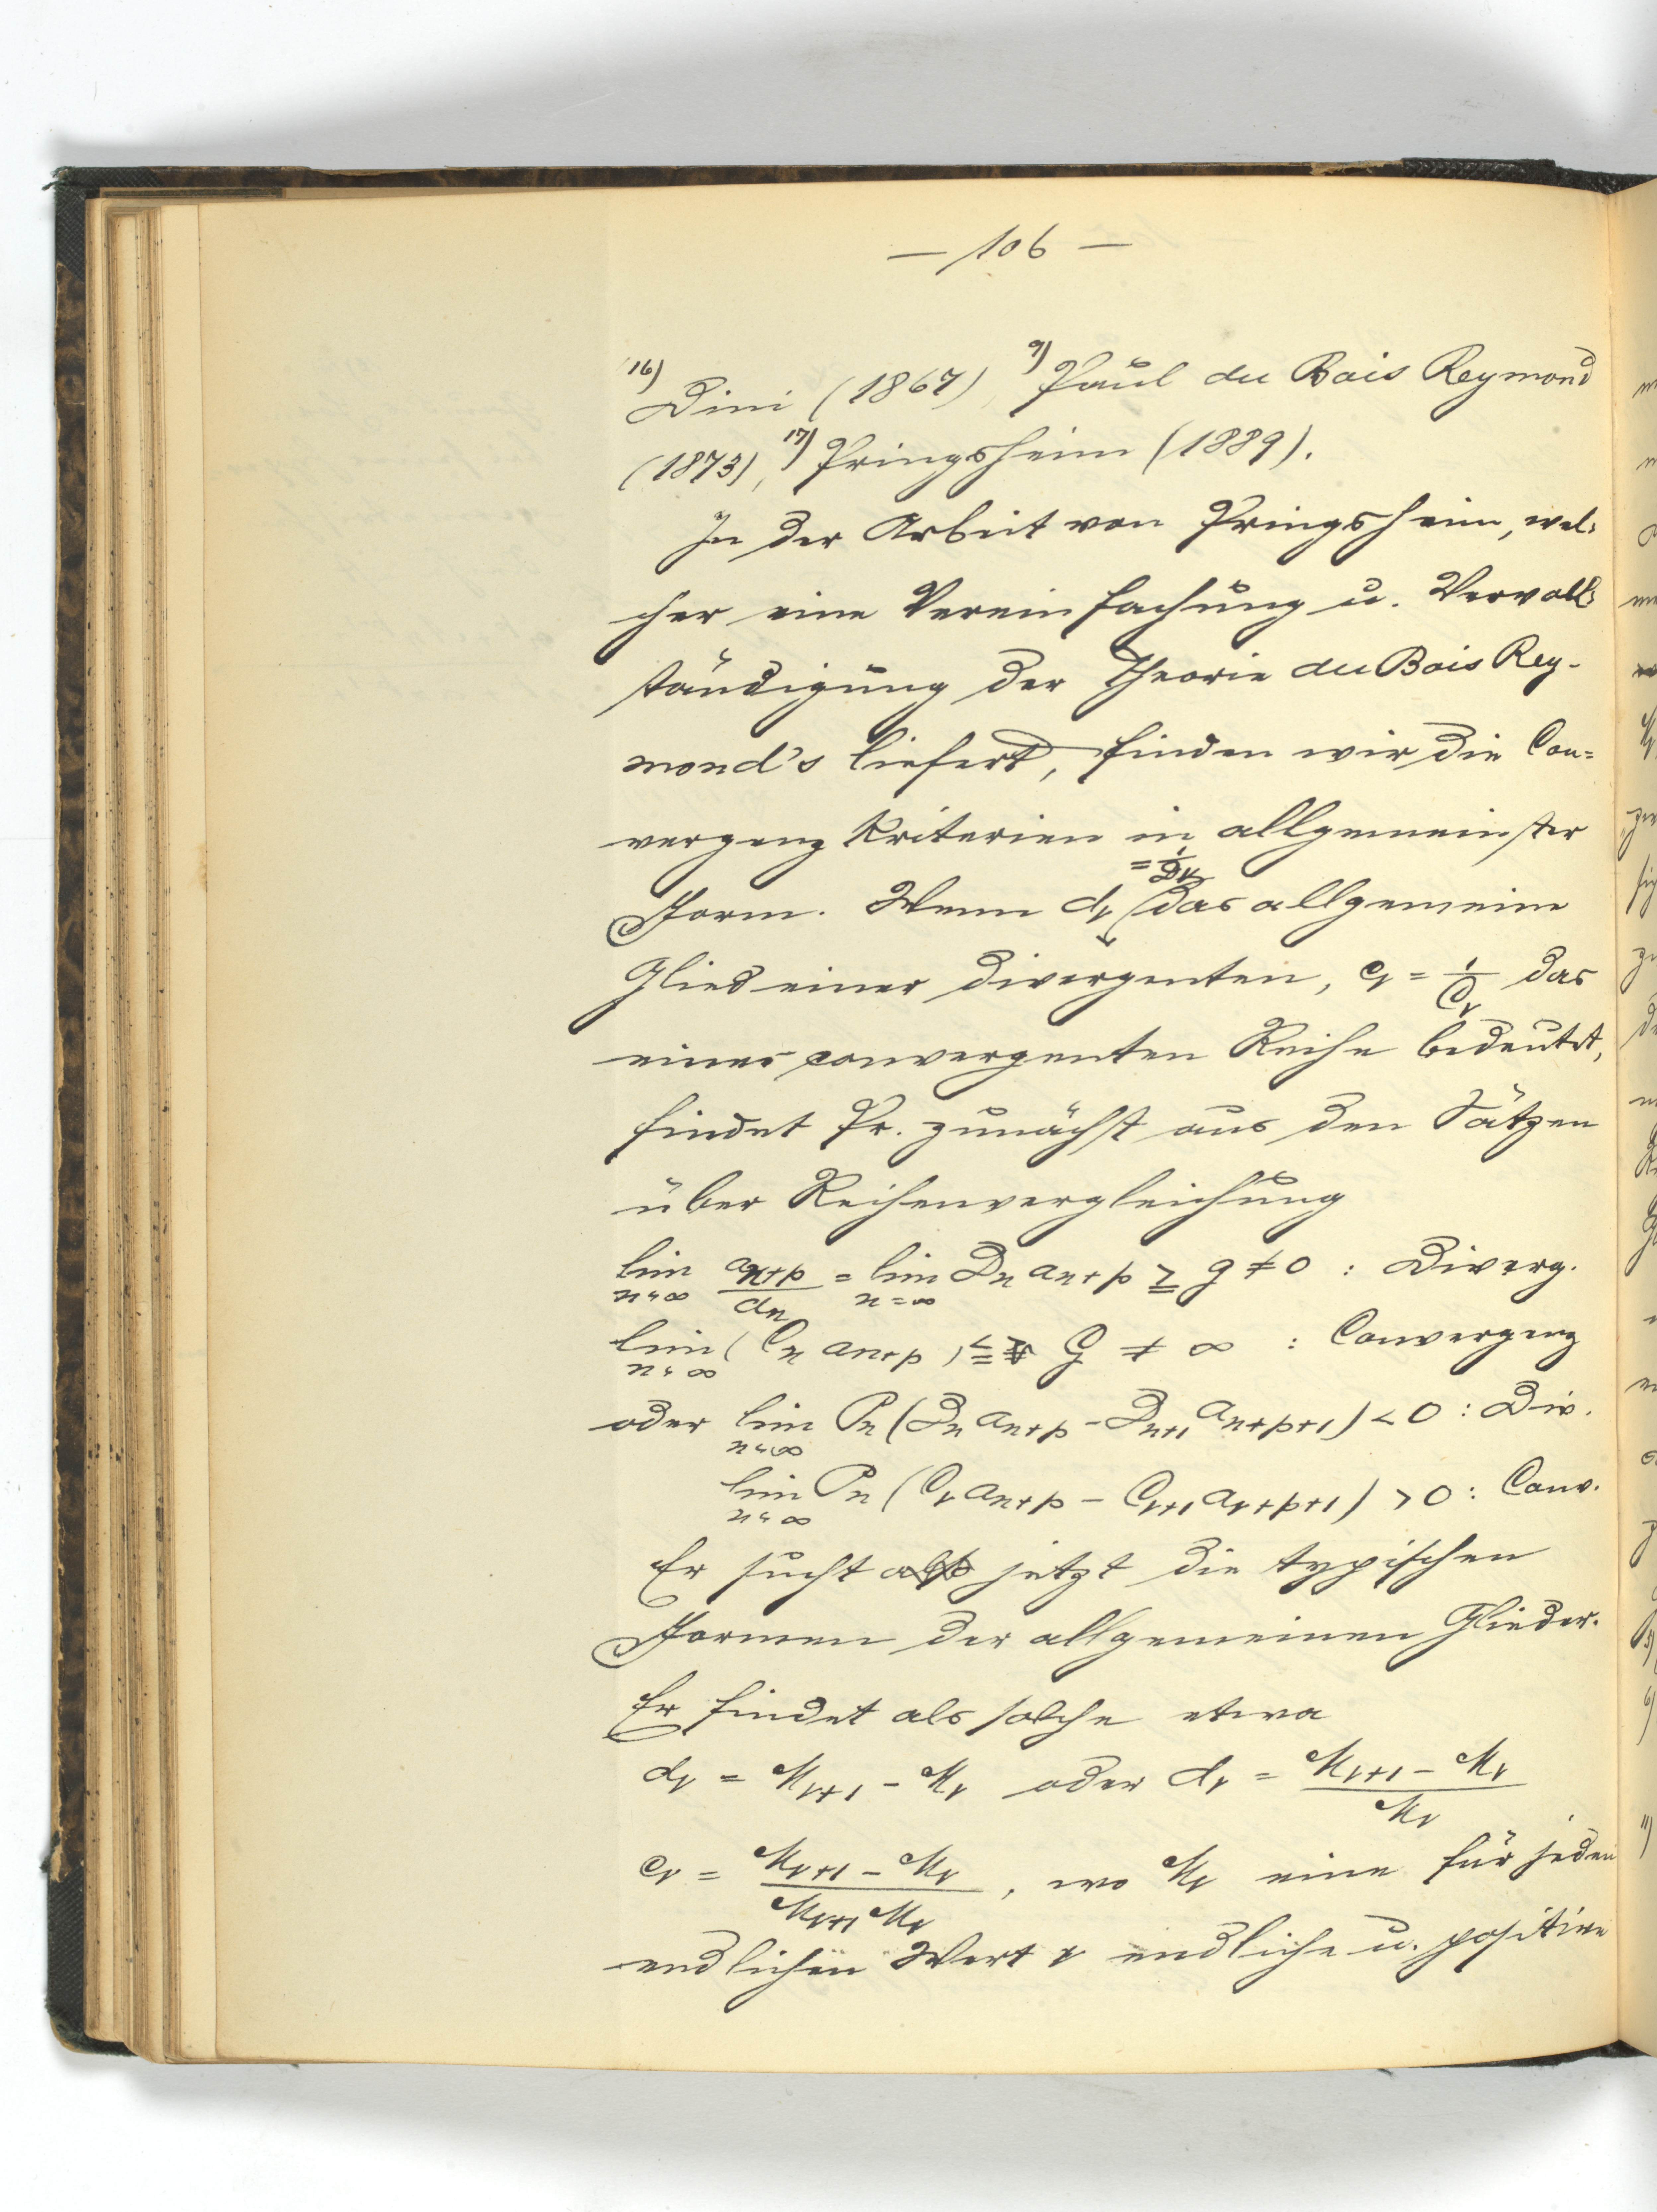 — 106 —
16) Dini (1867), 9) Paul du Bois Reymond
(1873), 17) Pringsheim (1889).
In der Arbeit von Pringsheim, wel-
cher eine Vereinfachung u. Vervoll-
ständigung der Theorie du Bois Rey-
mond's liefert, finden wir die Con=
vergenz Kriterien in allgemeinster
Form. Wenn d_ν = 1/D_ν das allgemeine
Glied einer divergenten, c_ν = 1/C_ν das
einer convergenten Reihe bedeutet,
findet Pr. zunächst aus den Sätzen
über Reihenvergleichung
lim_{n=∞} a_{n+p}/d_n = lim_{n=∞} D_n a_{n+p} ≧ g ≠ 0 : Diverg.
lim_{n=∞} (C_n a_{n+p}) ≦ G ≠ ∞ : Convergenz
oder lim_{n=∞} P_n (D_n a_{n+p} - D_{n+1} a_{n+p+1}) < 0 : Div.
lim_{n=∞} P_n (C_ν a_{n+p} - C_{ν+1} a_{ν+p+1}) > 0 : Conv.
Er sucht also jetzt die typischen
Formen der allgemeinen Glieder.
Er findet als solche etwa
d_ν = M_{ν+1} - M_ν oder d_ν = (M_{ν+1} - M_ν)/M_ν
c_ν = (M_{ν+1} - M_ν)/(M_{ν+1} M_ν), wo M_ν eine für jeden
endlichen Wert ν endliche u. positive